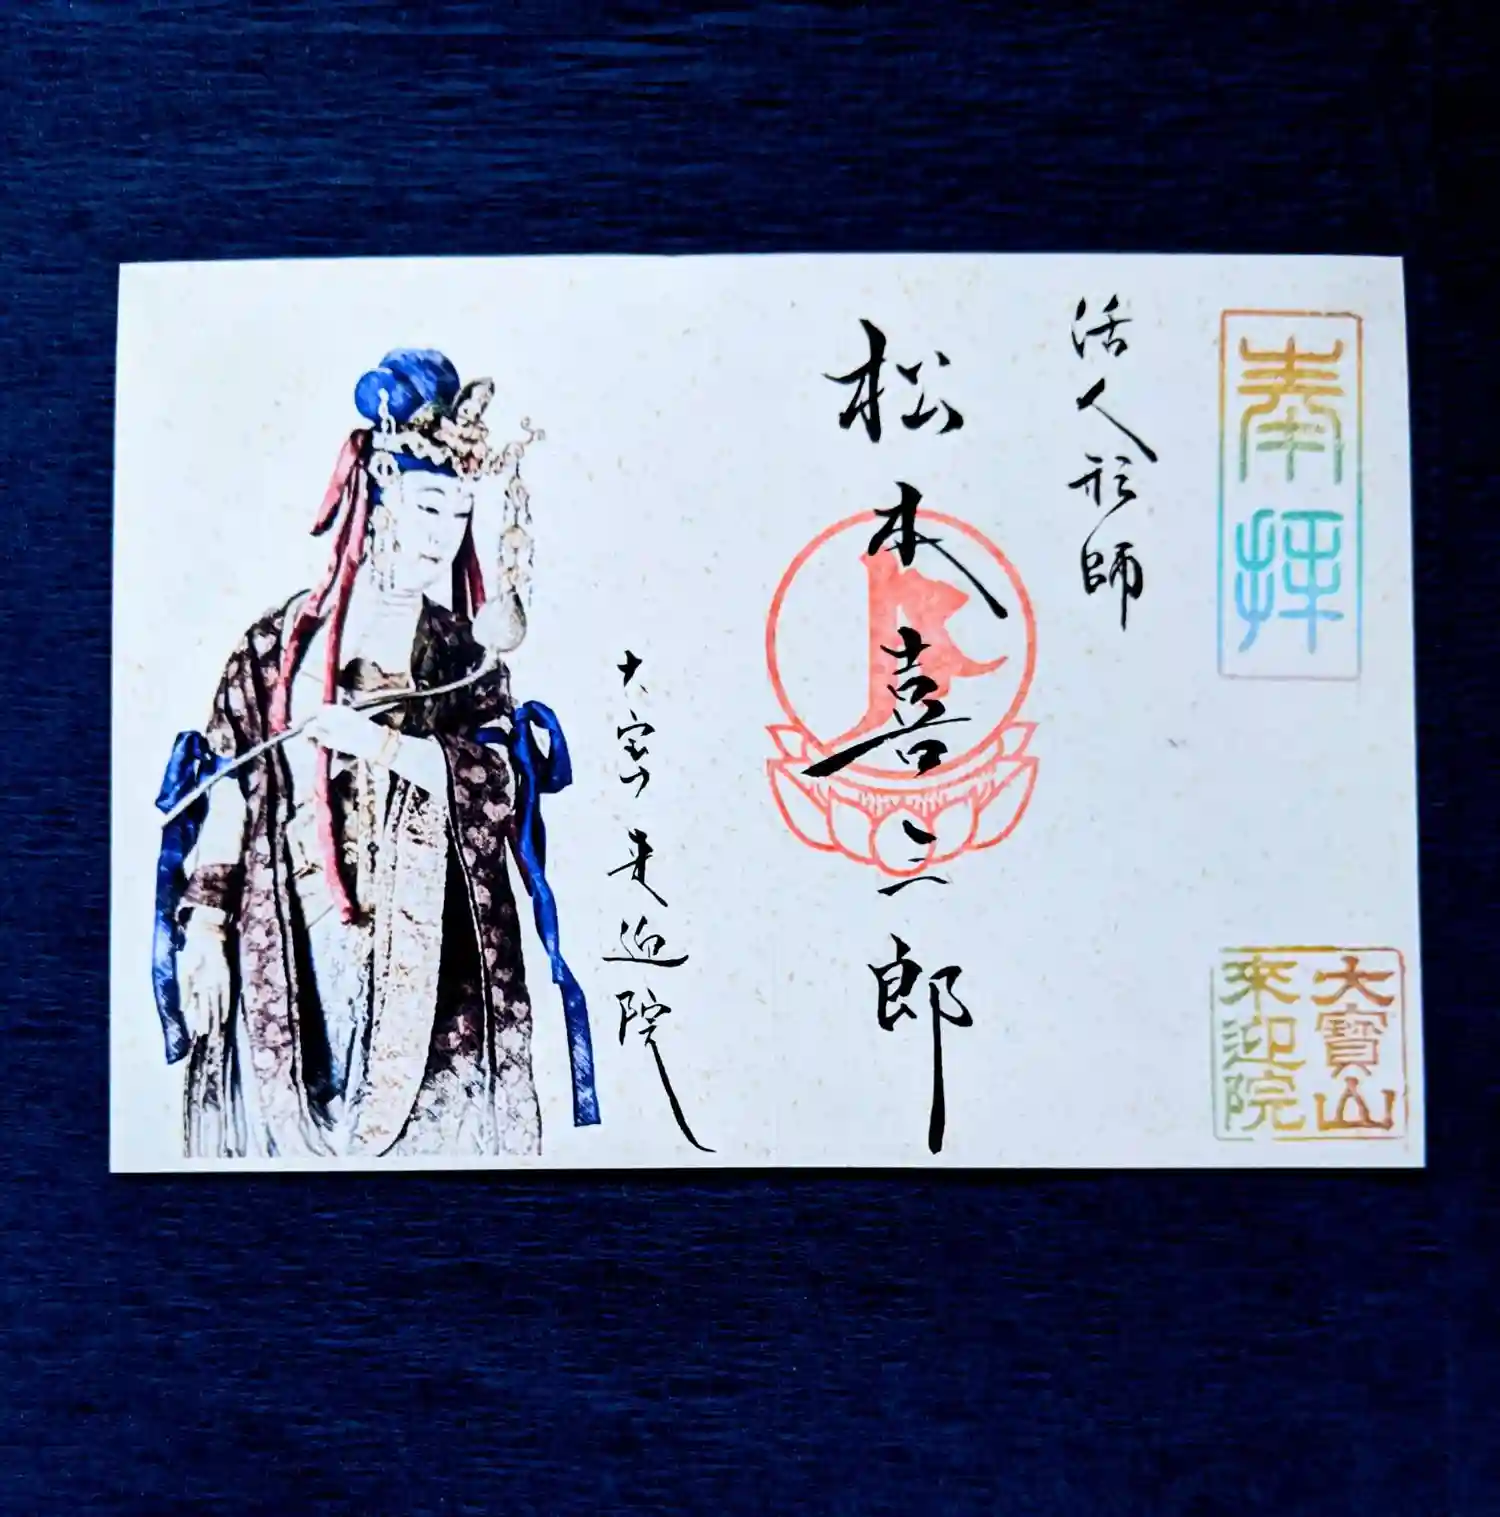 奉拝
大寶山
來迎院
活人形師
松本喜三郎
大宝山来迎院